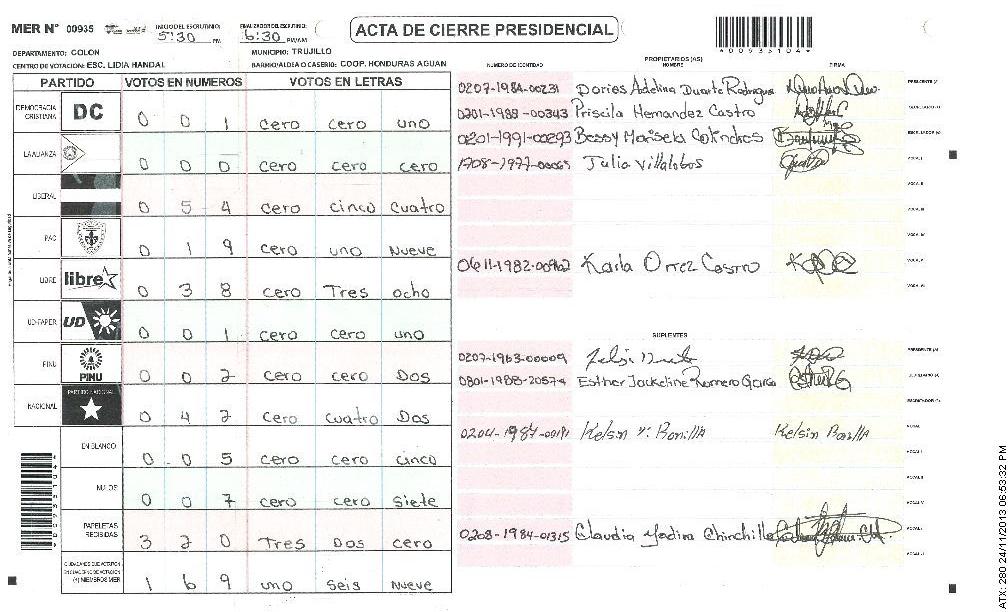 MER Nº 00935 INICIO DEL ESCRUTINIO: 5:30 PM FINALIZADO DEL ESCRUTINIO: 6:30 PM/AM ACTA DE CIERRE PRESIDENCIAL
*00935104*
DEPARTAMENTO: COLON MUNICIPIO: TRUJILLO
CENTRO DE VOTACION: ESC. LIDIA HANDAL BARRIO/ALDEA O CASERIO: COOP. HONDURAS AGUAN
PARTIDO VOTOS EN NUMEROS VOTOS EN LETRAS
DEMOCRACIA CRISTIANA DC 0 0 1 cero cero uno
LA ALIANZA 0 0 0 cero cero cero
LIBERAL 0 5 4 cero cinco cuatro
PAC 0 1 9 cero uno Nueve
LIBRE libre 0 3 8 cero Tres ocho
UD-FAPER UD 0 0 1 cero cero uno
PINU PINU 0 0 2 cero cero Dos
NACIONAL PARTIDO NACIONAL 0 4 2 cero cuatro Dos
EN BLANCO 0 0 5 cero cero cinco
NULOS 0 0 7 cero cero siete
PAPELETAS RECIBIDAS 3 2 0 Tres Dos cero
CIUDADANOS QUE VOTARON EN CUADERNO DE VOTACION (+) MIEMBROS MER 1 6 9 uno seis Nueve
PROPIETARIOS (AS)
NUMERO DE IDENTIDAD NOMBRE FIRMA
0207-1984-00231 Dories Adelina Duarte Rodriguez PRESIDENTE (A)
0201-1988-00343 Priscila Hernandez Castro SECRETARIO (A)
0201-1991-00293 Bessy Marisela ESCRUTADOR (A)
1708-1977-00065 Julia Villalobos VOCAL I
VOCAL II
VOCAL III
VOCAL IV
0611-1982-00962 Karla Orrez Castro VOCAL V
VOCAL VI
SUPLENTES
0207-1963-00009 PRESIDENTE (A)
0801-1988-20574 Esther Jackeline Romero Garcia SECRETARIO (A)
ESCRUTADOR (A)
0204-1987-00191 Kelsin Y. Bonilla Kelsin Bonilla VOCAL I
0208-1984-01315 Claudia Yadira Chinchilla
ATX: 280 24/11/2013 06:53:32 PM